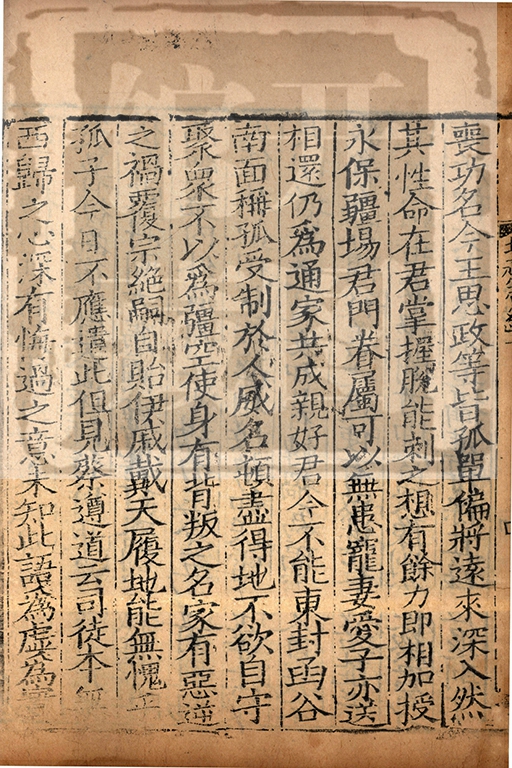 喪功名今王思政等皆孤單偏將遠來深入然
其性命在君掌握脫能刺之想有餘力即相加授
永保疆埸君門眷屬可以無患寵妻愛子亦送
相還仍為通家共成親好君今不能東封函谷
南面稱孤受制於人威名頓盡得地不欲自守
聚眾不以為疆空使身有背叛之名家有惡逆
之禍覆宗絕嗣自貽伊戚戴天履地能無愧
孤子今日不應遣此但見蔡遵道云司徒本無
西歸之心深有悔過之意未知此語為虛為實